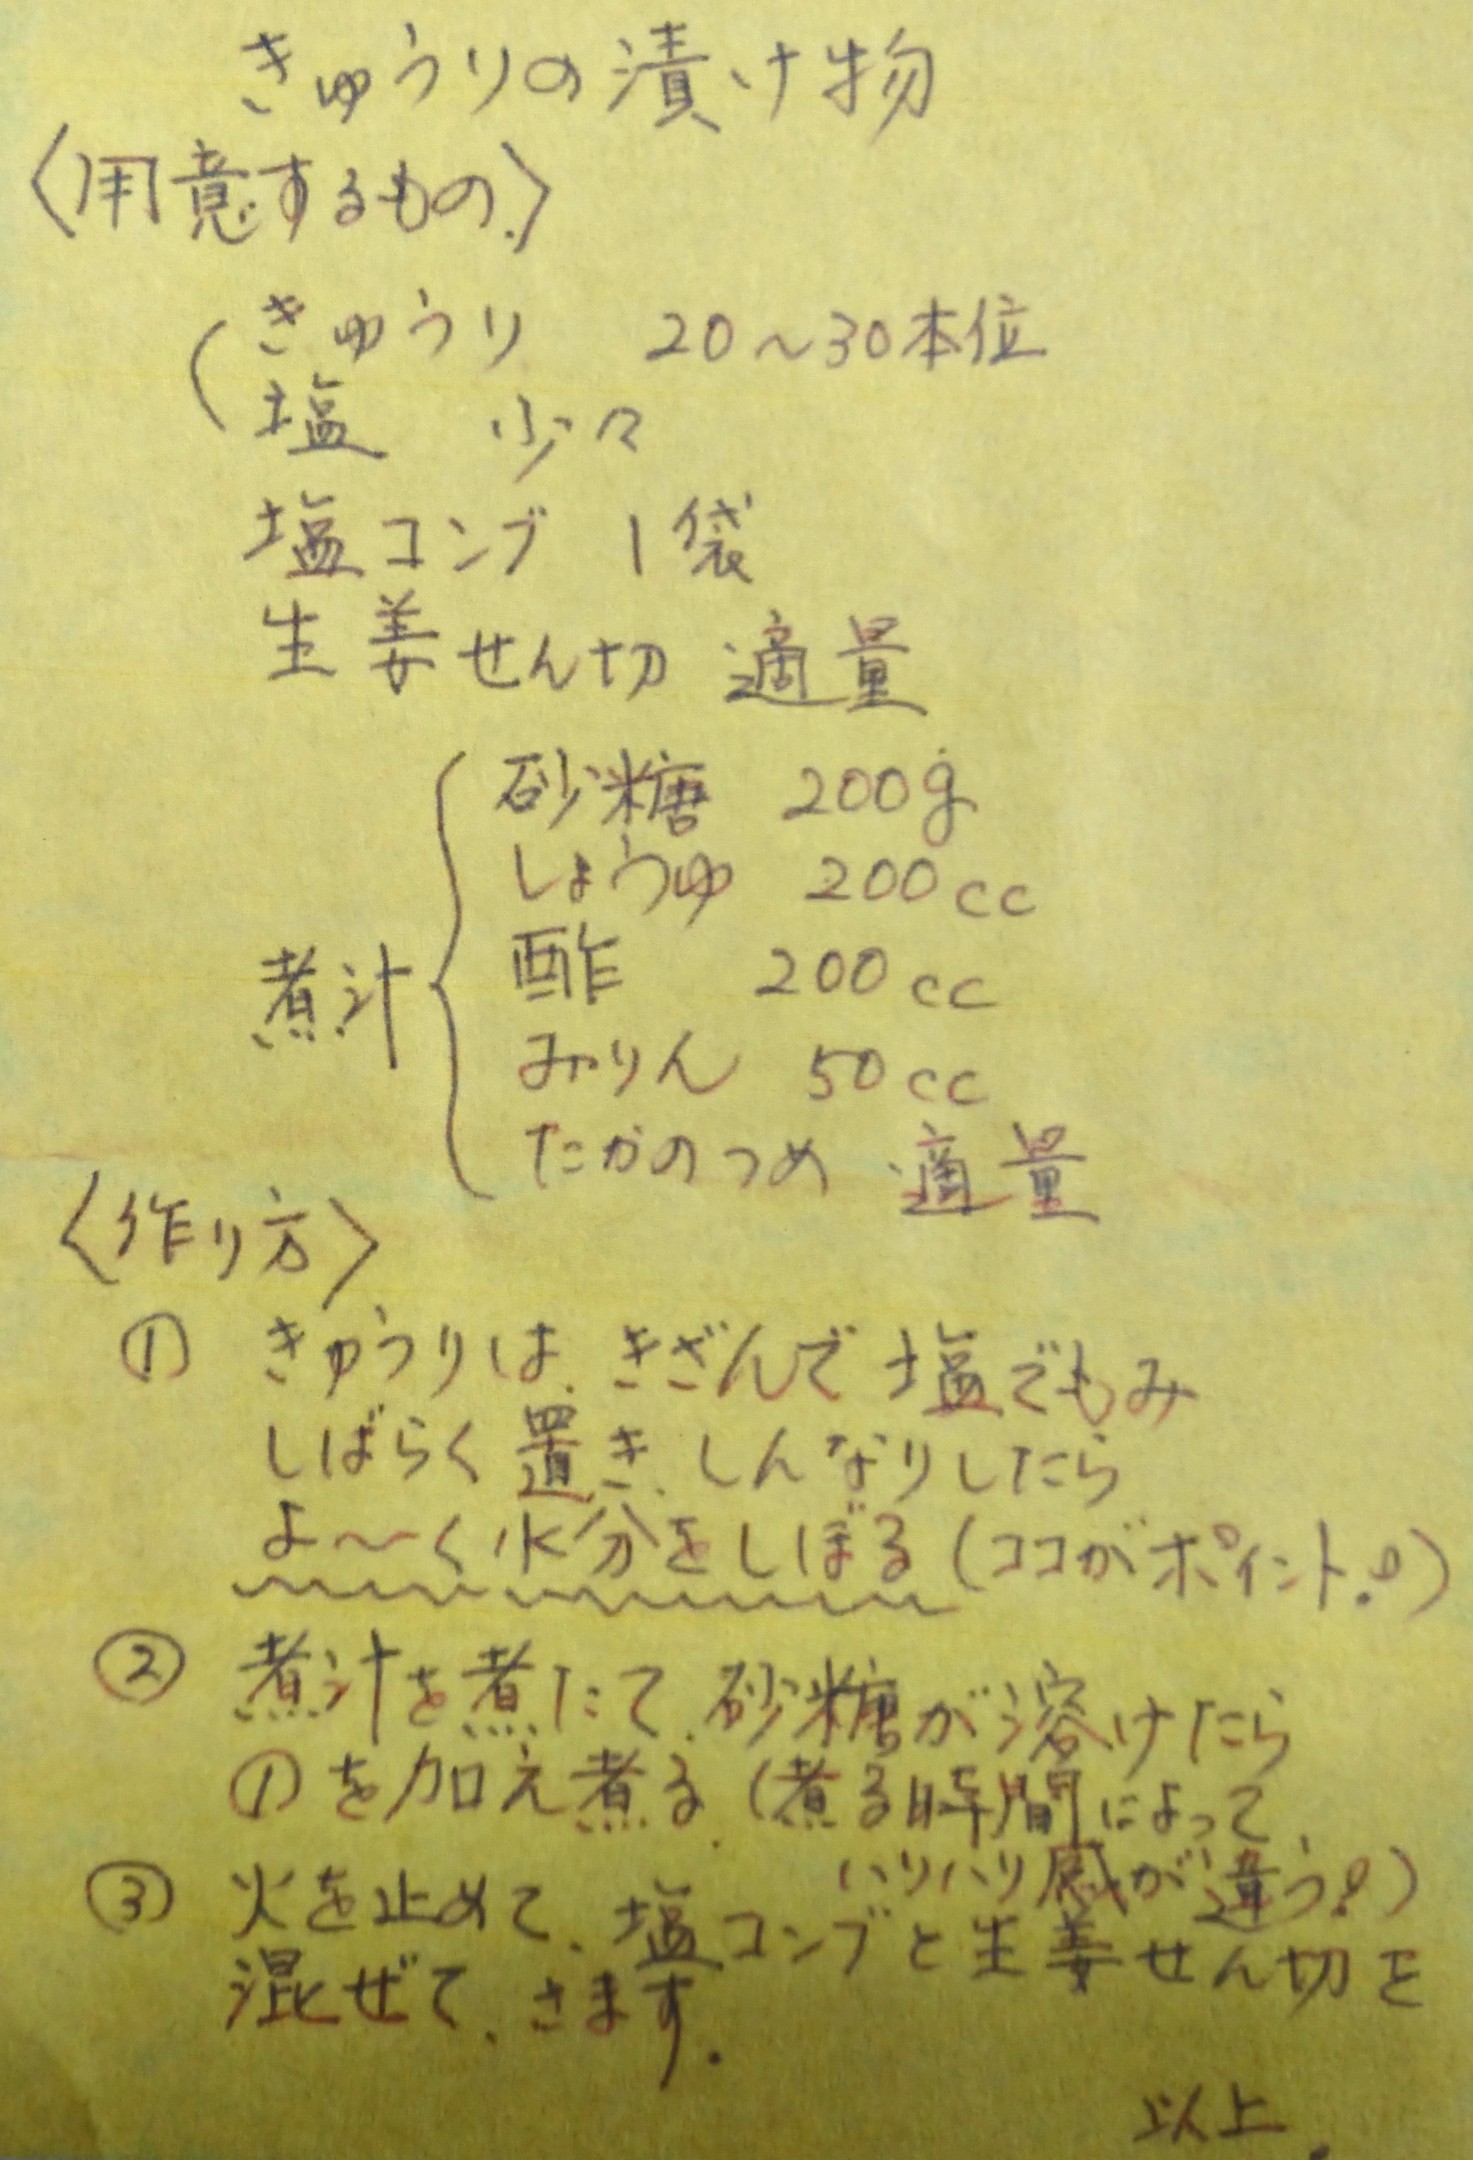 きゅうりの漬け物
〈用意するもの.〉
きゅうり 20〜30本位
塩 少々
塩コンブ 1袋
生姜せん切 適量
煮汁
砂糖 200g
しょうゆ 200cc
酢 200cc
みりん 50cc
たかのつめ 適量
〈作り方〉
① きゅうりは、きざんで塩でもみ
しばらく置き、しんなりしたら
よ〜く水分をしぼる(ココがポイント!)
② 煮汁を煮たて、砂糖が溶けたら
①を加え煮る。(煮る時間によって、
ハリハリ感が違う!)
③ 火を止めて、塩コンブと生姜せん切を
混ぜて、さます.
以上.